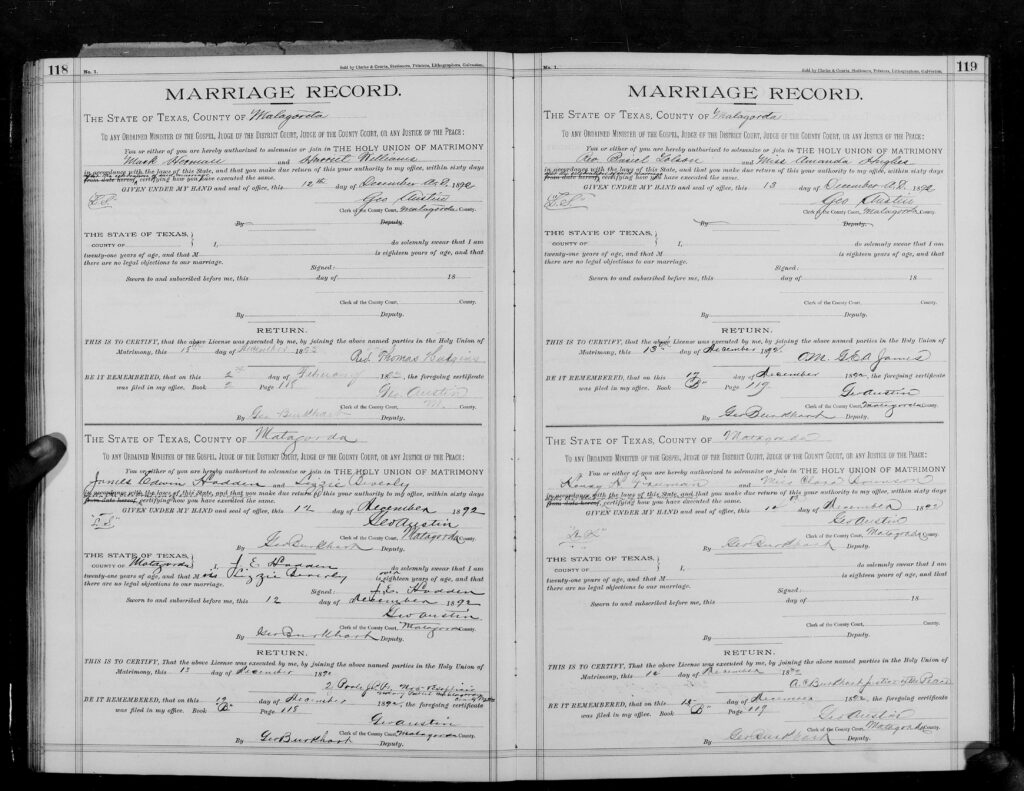 118
No. 1.
Sold by Clarke & Courts, Stationers, Printers, Lithographers, Galveston.
MARRIAGE RECORD.
THE STATE OF TEXAS, COUNTY OF Matagorda
TO ANY ORDAINED MINISTER OF THE GOSPEL, JUDGE OF THE DISTRICT COURT, JUDGE OF THE COUNTY COURT, OR ANY JUSTICE OF THE PEACE:
You or either of you are hereby authorized to solemnize or join in THE HOLY UNION OF MATRIMONY
Mack and Harriet Williams
in accordance with the laws of this State, and that you make due return of this your authority to my office, within sixty days
from date hereof, certifying how you have executed the same.
GIVEN UNDER MY HAND and seal of office, this 12th day of December A.D. 1892
"L.S." Geo Austin
Clerk of the County Court, Matagorda County.
By Deputy.
THE STATE OF TEXAS,
COUNTY OF I, do solemnly swear that I am
twenty-one years of age, and that M is eighteen years of age, and that
there are no legal objections to our marriage.
Signed:
Sworn to and subscribed before me, this day of 18
Clerk of the County Court, County.
By Deputy.
RETURN.
THIS IS TO CERTIFY, That the above License was executed by me, by joining the above named parties in the Holy Union of
Matrimony, this 15 day of December 18
Thomas Hudgins
BE IT REMEMBERED, that on this 2 day of February 18 , the foregoing certificate
was filed in my office. Book Page 118
Geo Austin
Clerk of the County Court, M. County.
By Geo Burkhart Deputy.
THE STATE OF TEXAS, COUNTY OF Matagorda
TO ANY ORDAINED MINISTER OF THE GOSPEL, JUDGE OF THE DISTRICT COURT, JUDGE OF THE COUNTY COURT, OR ANY JUSTICE OF THE PEACE:
You or either of you are hereby authorized to solemnize or join in THE HOLY UNION OF MATRIMONY
James Edwin Hadden and Lizzie Beverly
in accordance with the laws of this State, and that you make due return of this your authority to my office, within sixty days
from date hereof, certifying how you have executed the same.
GIVEN UNDER MY HAND and seal of office, this 12 day of December 1892
"L.S." Geo Austin
Clerk of the County Court, Matagorda County.
By Geo Burkhart Deputy.
THE STATE OF TEXAS,
COUNTY OF Matagorda I, J. E. Hadden do solemnly swear that I am
twenty-one years of age, and that M iss Lizzie Beverly is over eighteen years of age, and that
there are no legal objections to our marriage.
Signed: J. E. Hadden
Sworn to and subscribed before me, this 12 day of December 1892
Geo Austin
Clerk of the County Court, Matagorda County.
By Geo Burkhart Deputy.
RETURN.
THIS IS TO CERTIFY, That the above License was executed by me, by joining the above named parties in the Holy Union of
Matrimony, this 13 day of December 1892
BE IT REMEMBERED, that on this day of December 1892, the foregoing certificate
was filed in my office. Book "B" Page 118
Geo Austin
Clerk of the County Court, Matagorda County.
By Geo Burkhart Deputy.
119
No. 1.
Sold by Clarke & Courts, Stationers, Printers, Lithographers, Galveston.
MARRIAGE RECORD.
THE STATE OF TEXAS, COUNTY OF Matagorda
TO ANY ORDAINED MINISTER OF THE GOSPEL, JUDGE OF THE DISTRICT COURT, JUDGE OF THE COUNTY COURT, OR ANY JUSTICE OF THE PEACE:
You or either of you are hereby authorized to solemnize or join in THE HOLY UNION OF MATRIMONY
and Miss Amanda Hughes
in accordance with the laws of this State, and that you make due return of this your authority to my office, within sixty days
from date hereof, certifying how you have executed the same.
GIVEN UNDER MY HAND and seal of office, this 13 day of December A.D. 1892
"L.S." Geo Austin
Clerk of the County Court, Matagorda County.
By Deputy.
THE STATE OF TEXAS,
COUNTY OF I, do solemnly swear that I am
twenty-one years of age, and that M is eighteen years of age, and that
there are no legal objections to our marriage.
Signed:
Sworn to and subscribed before me, this day of 18
Clerk of the County Court, County.
By Deputy.
RETURN.
THIS IS TO CERTIFY, That the above License was executed by me, by joining the above named parties in the Holy Union of
Matrimony, this 13th day of December 1892
James
BE IT REMEMBERED, that on this 17 day of December 1892, the foregoing certificate
was filed in my office. Book "B" Page 119
Geo Austin
Clerk of the County Court, Matagorda County.
By Geo Burkhart Deputy.
THE STATE OF TEXAS, COUNTY OF Matagorda
TO ANY ORDAINED MINISTER OF THE GOSPEL, JUDGE OF THE DISTRICT COURT, JUDGE OF THE COUNTY COURT, OR ANY JUSTICE OF THE PEACE:
You or either of you are hereby authorized to solemnize or join in THE HOLY UNION OF MATRIMONY
and Miss Clara
in accordance with the laws of this State, and that you make due return of this your authority to my office, within sixty days
from date hereof, certifying how you have executed the same.
GIVEN UNDER MY HAND and seal of office, this day of December 1892
Geo Austin
Clerk of the County Court, Matagorda County.
By Geo Burkhart Deputy.
THE STATE OF TEXAS,
COUNTY OF I, do solemnly swear that I am
twenty-one years of age, and that M is eighteen years of age, and that
there are no legal objections to our marriage.
Signed:
Sworn to and subscribed before me, this day of 18
Clerk of the County Court, County.
By Deputy.
RETURN.
THIS IS TO CERTIFY, That the above License was executed by me, by joining the above named parties in the Holy Union of
Matrimony, this day of December 1892
Burkhart Justice of the Peace
BE IT REMEMBERED, that on this 18 day of December 1892, the foregoing certificate
was filed in my office. Book "B" Page 119
Geo Austin
Clerk of the County Court, Matagorda County.
By Geo Burkhart Deputy.